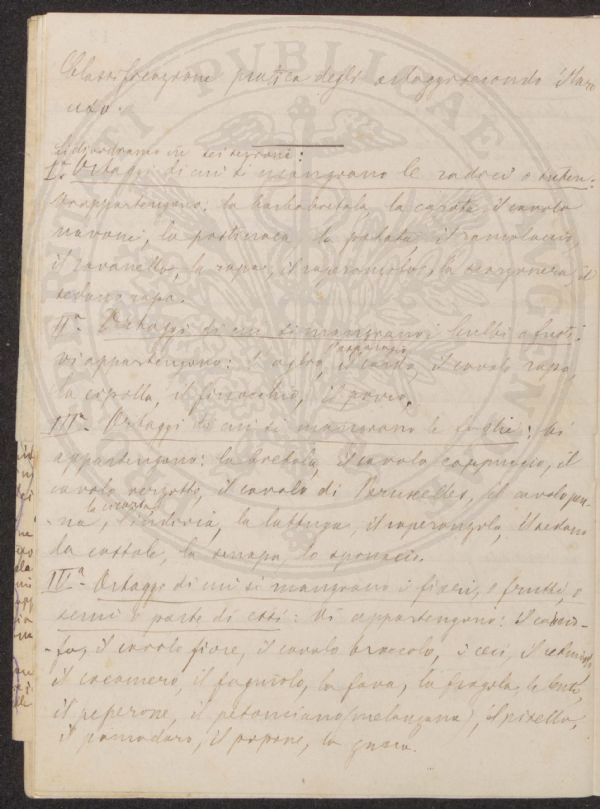 Classificazione pratica degli ortaggi secondo il Tama
uzo.
Si dividono in sei sezioni:
Iª. Ortaggi di cui si mangiano le radici o
Vi appartengono: la barbabietola, la carota, il cavolo
navone, la pastinaca, la patata, il ramolaccio,
il ravanello, la rapa, il raperonzolo, la scorzonera, il
sedano rapa.
IIª. Ortaggi di cui si mangiano i bulbi o fusti.
Vi appartengono: l'aglio, l'asparagio, il cardo, il cavolo rapa,
la cipolla, il finocchio, il porro.
IIIª. Ortaggi di cui si mangiano le foglie: Vi
appartengono: la bietola, il cavolo cappuccio, il
cavolo verzotto, il cavolo di Bruxelles, il cavolo pen-
-na, la cicoria, l'indivia, la lattuga, il raperonzolo, il sedano
da costole, la senapa, lo spinacio.
IVª. Ortaggi di cui si mangiano i fiori, o frutti, o
semi o parte di essi: Vi appartengono: il carcio-
-fo, il cavolo fiore, il cavolo broccolo, i ceci, il cetriolo,
il cocomero, il fagiuolo, la fava, la fragola, le lenti,
il peperone, il petonciano (melanzana), il pisello,
il pomodoro, il popone, la zucca.